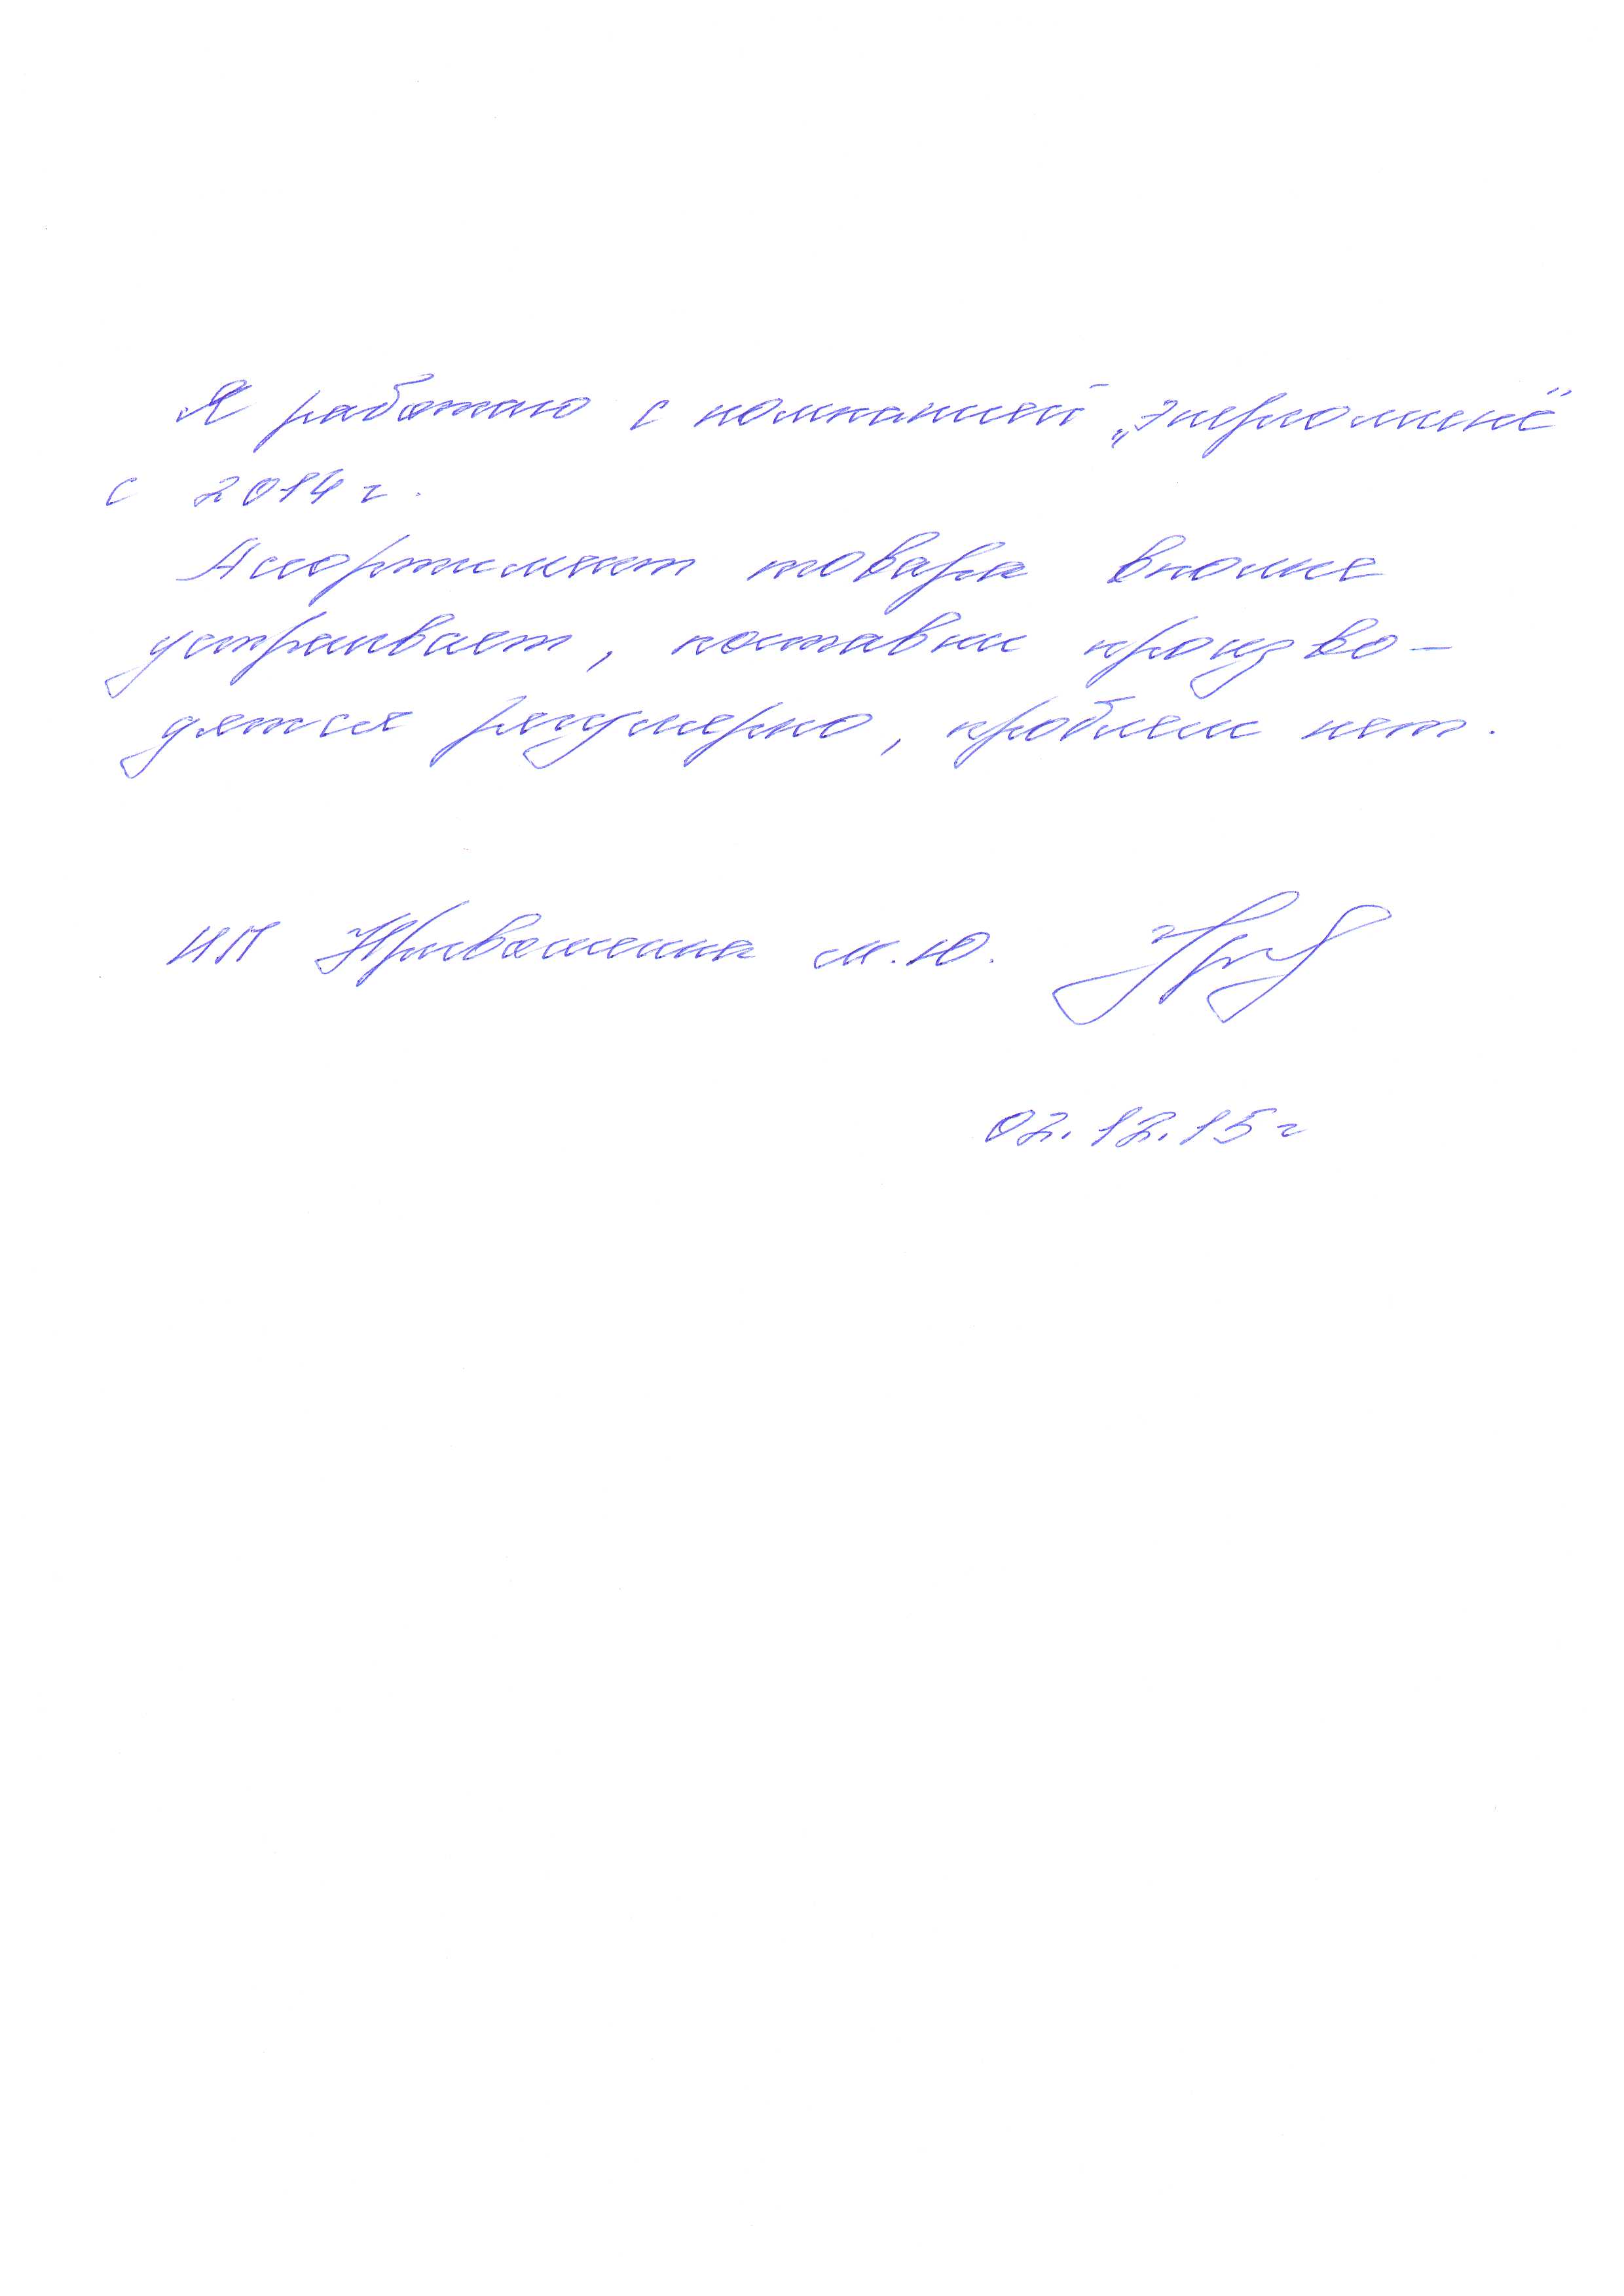 Я работаю с компанией „Энерголине"
с 2014 г.
Ассортимент товара вполне
устраивает, поставки произво-
дятся регулярно, проблем нет.
ИП М.Ю.
02.12.15 г